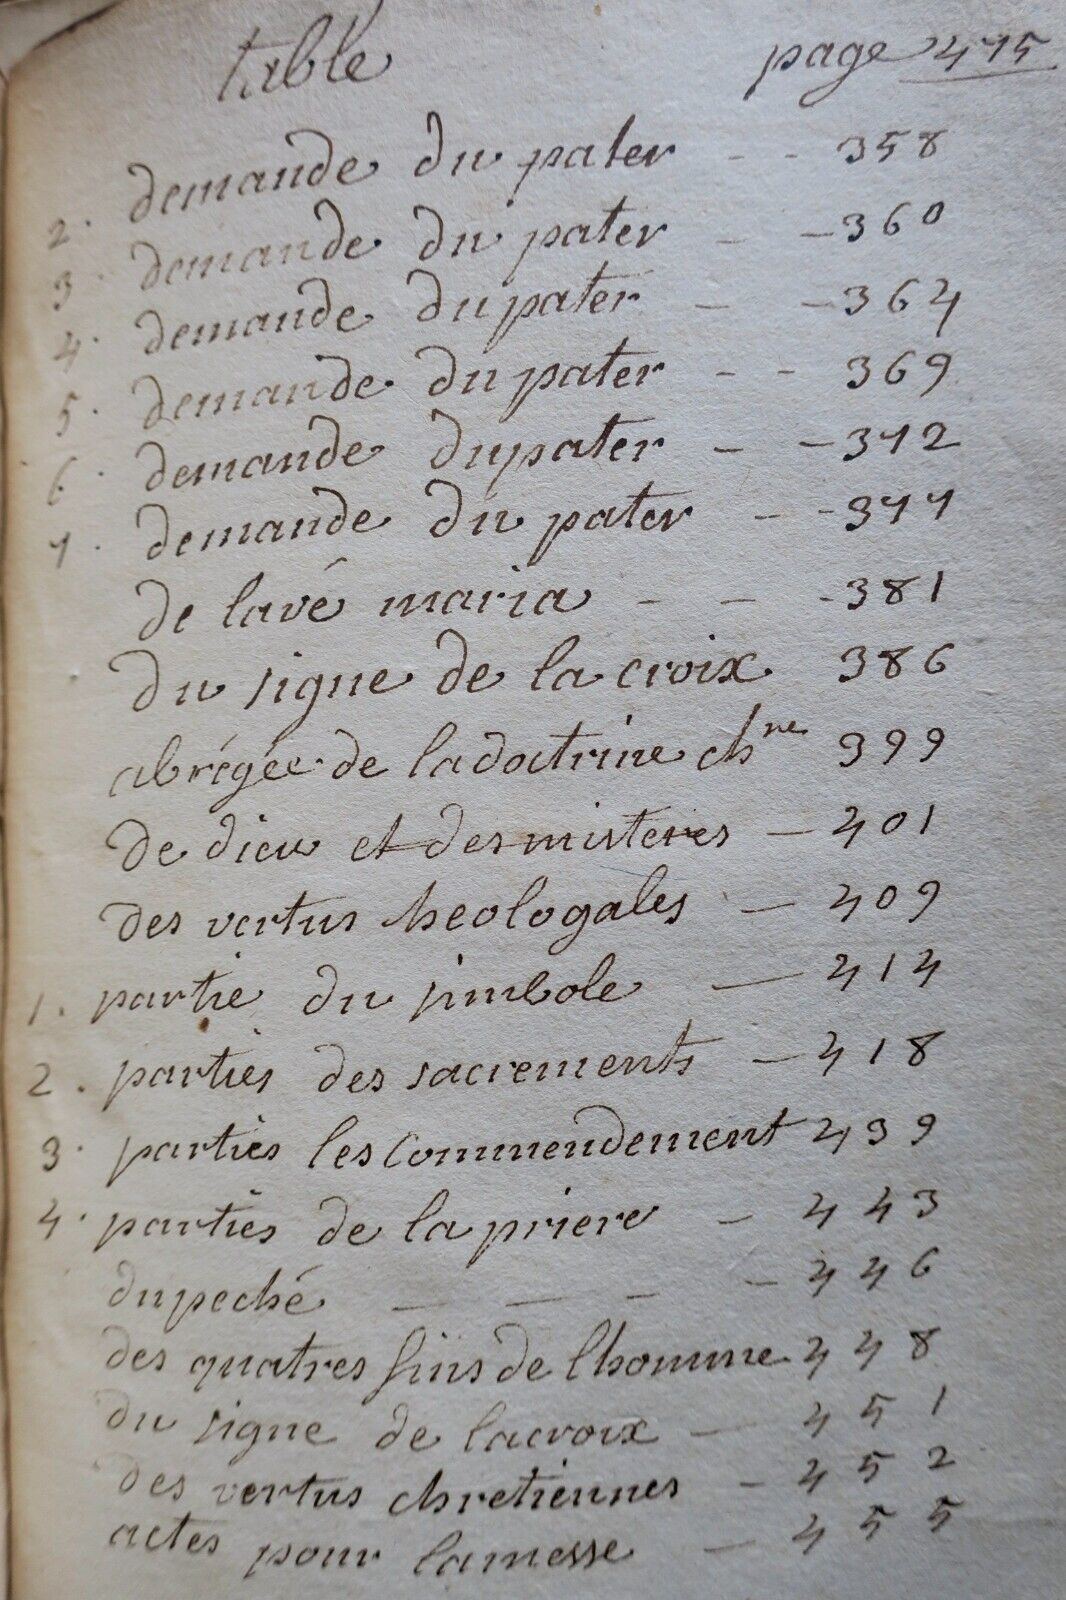 table page 475
2. demande du pater - - 358
3. demande du pater - - 360
4. demande du pater - - 364
5. demande du pater - - 369
6. demande du pater - - 372
7. demande du pater - - 377
de lavé maria - - - 381
du signe de la croix 386
abrégée de la doctrine chne 399
de dieu et des misteres - 401
des vertus theologales - 409
1. partie du simbole - 414
2. parties des sacrements - 418
3. parties les commendement 439
4. parties de la priere - 443
du peché - - - - 446
des quatres fins de lhomme 448
du signe de la croix - 451
des vertus chretiennes - 452
actes pour la messe - 455